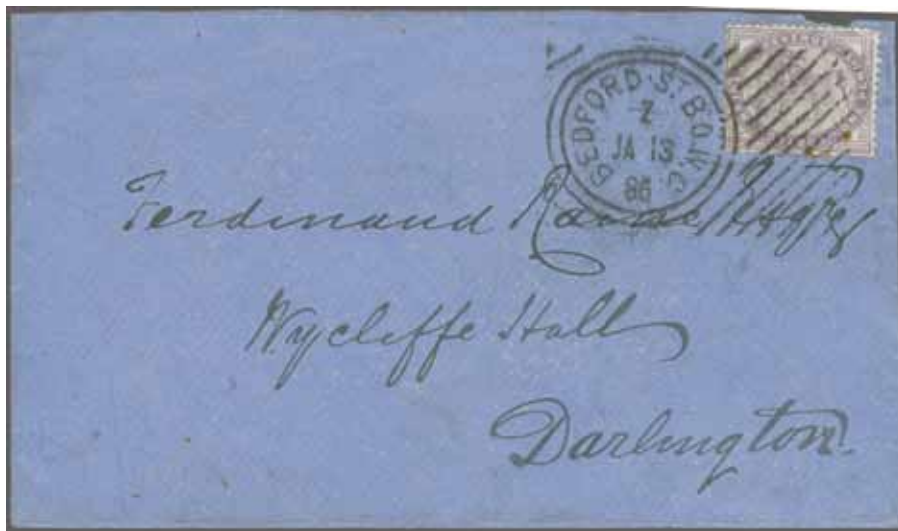 BEDFORD·S. B.O.W.C
Z
JA 13
86
Ferdinand
Wycliffe Hall
Darlington.